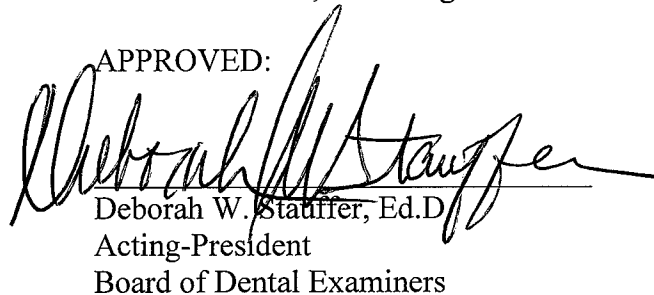 APPROVED:
Deborah W Stauffer
Deborah W. Stauffer, Ed.D
Acting-President
Board of Dental Examiners